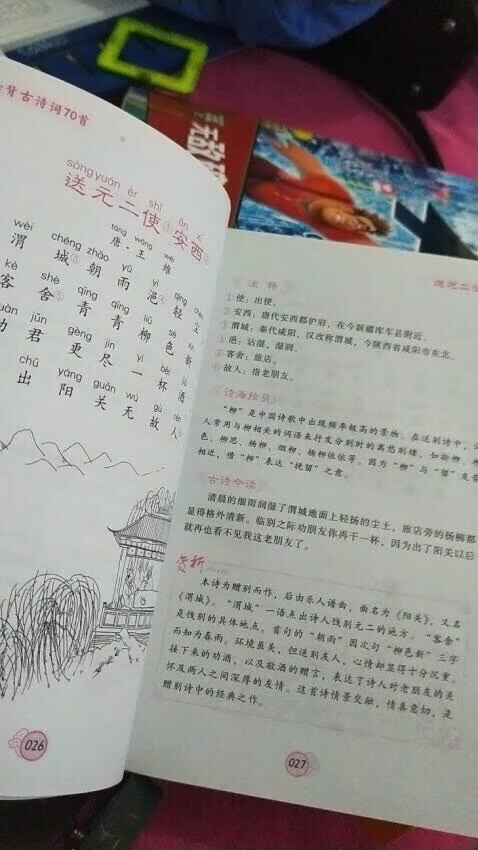 背古诗词70首
sòng yuán èr shǐ ān xī
送元二使①安西②
táng wáng wéi
唐·王维
wèi chéng zhāo yǔ yì qīng chén
渭城③朝雨浥④轻尘
kè shè qīng qīng liǔ sè xīn
客舍⑤青青柳色新
jūn gèng jìn yì bēi jiǔ
君更尽一杯酒
chū yáng guān wú gù rén
出阳关无故人
026
无敌
送元二
注释
①使：出使。
②安西：唐代安西都护府，在今新疆库车县附近。
③渭城：秦代咸阳，汉改称渭城，今陕西省咸阳市东北。
④浥：沾湿，湿润。
⑤客舍：旅店。
⑥故人：指老朋友。
诗海拾贝
“柳”是中国诗歌中出现频率极高的景物。在送别诗中，
人常用与柳相关的词语来抒发分别时的离愁别绪，如新柳、
色、柳思、杨柳、烟柳、杨柳依依等。因为“柳”与“留”发音
相近，借“柳”表达“挽留”之意。
古诗今读
清晨的细雨润湿了渭城地面上轻扬的尘土，旅店旁的杨柳都
显得格外清新。临别之际劝朋友你再干一杯，因为出了阳关以后
就再也看不见我这老朋友了。
赏析
本诗为赠别而作，后由乐人谱曲，曲名为《阳关》，又名
《渭城》。“渭城”一语点出诗人饯别元二的地方。“客舍”
是饯别的具体地点。首句的“朝雨”因次句“柳色新”三字
而知为春雨。环境虽美，但送别友人，心情却显得十分沉重。
接下来的劝酒，以及敬酒的赠言，表达了诗人对老朋友的关
怀及两人之间深厚的友情。这首诗情景交融，情真意切，是
赠别诗中的经典之作。
027